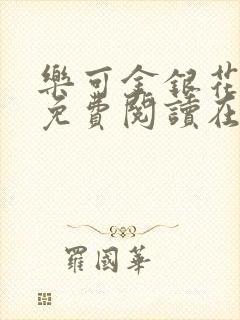 樂可金銀花
免費閱讀在
羅國華